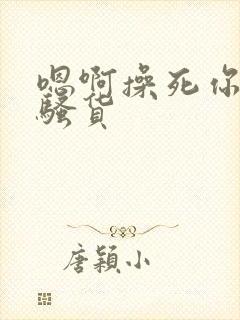 嗯啊操死你
骚货
唐颖小